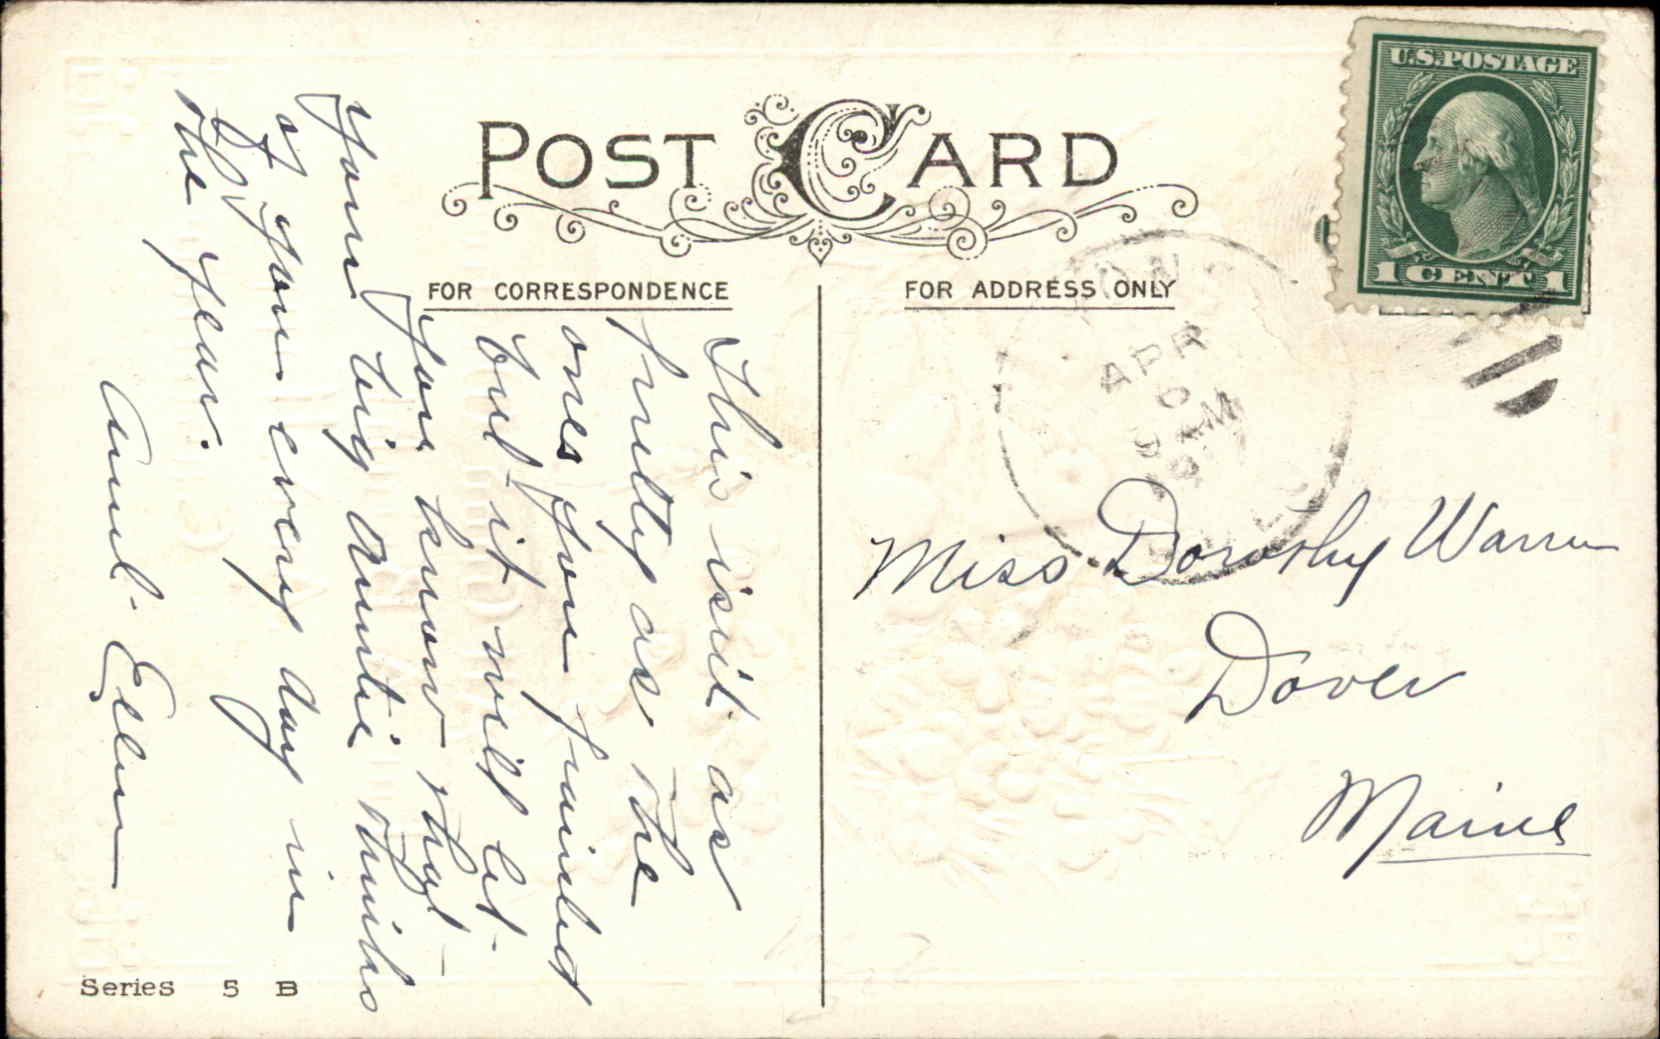 POST CARD
U.S. POSTAGE
1 CENT 1
FOR CORRESPONDENCE
FOR ADDRESS ONLY
APR
This isn't as
pretty as the
ones you painted
but it will let
you know that
your big Auntie thinks
of you every day in
the year.
Aunt Ellen
Miss Dorothy Warren
Dover
Maine
Series 5 B